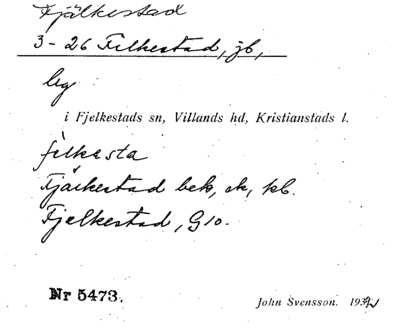 Fjälkestad
3-26 Filkestad, jb,
by
i Fjelkestads sn, Villands hd, Kristianstads l.
filkasta
Fjälkestad bek, ek, kb.
Fjelkestad, G10.
Nr 5473.
John Svensson. 193